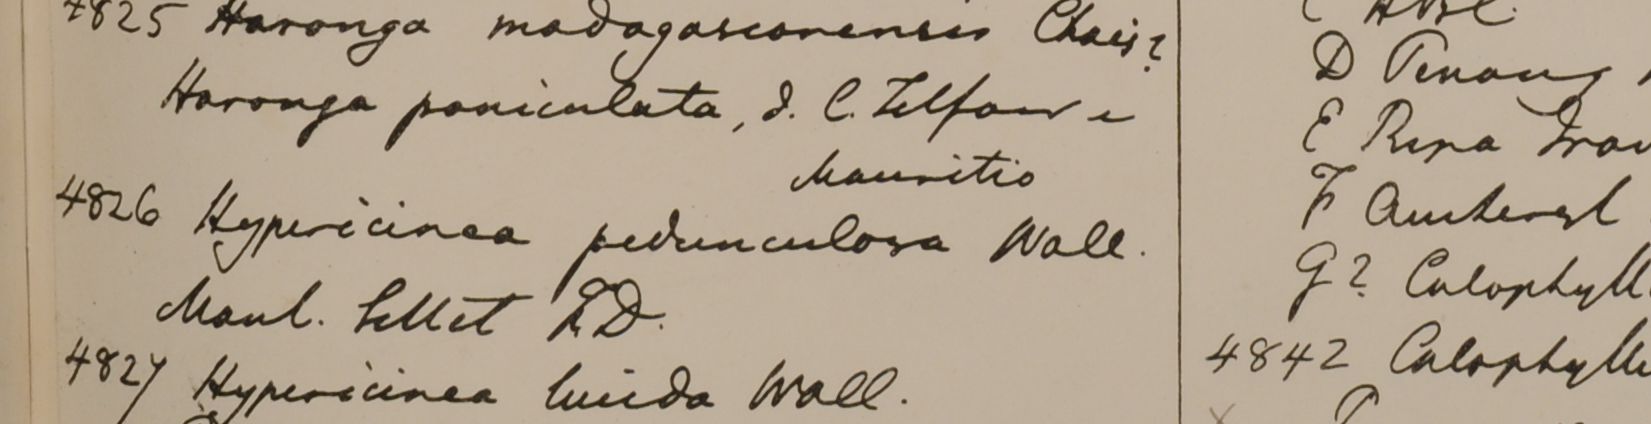 4825 Haronga madagascarensis Chois?
Haronga paniculata, d. C. Telfair e
Mauritio
4826 Hypericinea pedunculosa Wall.
Maul. Sillet F.D.
4827 Hypericinea lucida Wall.
D Penang
E Ripa
F Amherst
G? Calophyll
4842 Calophyll